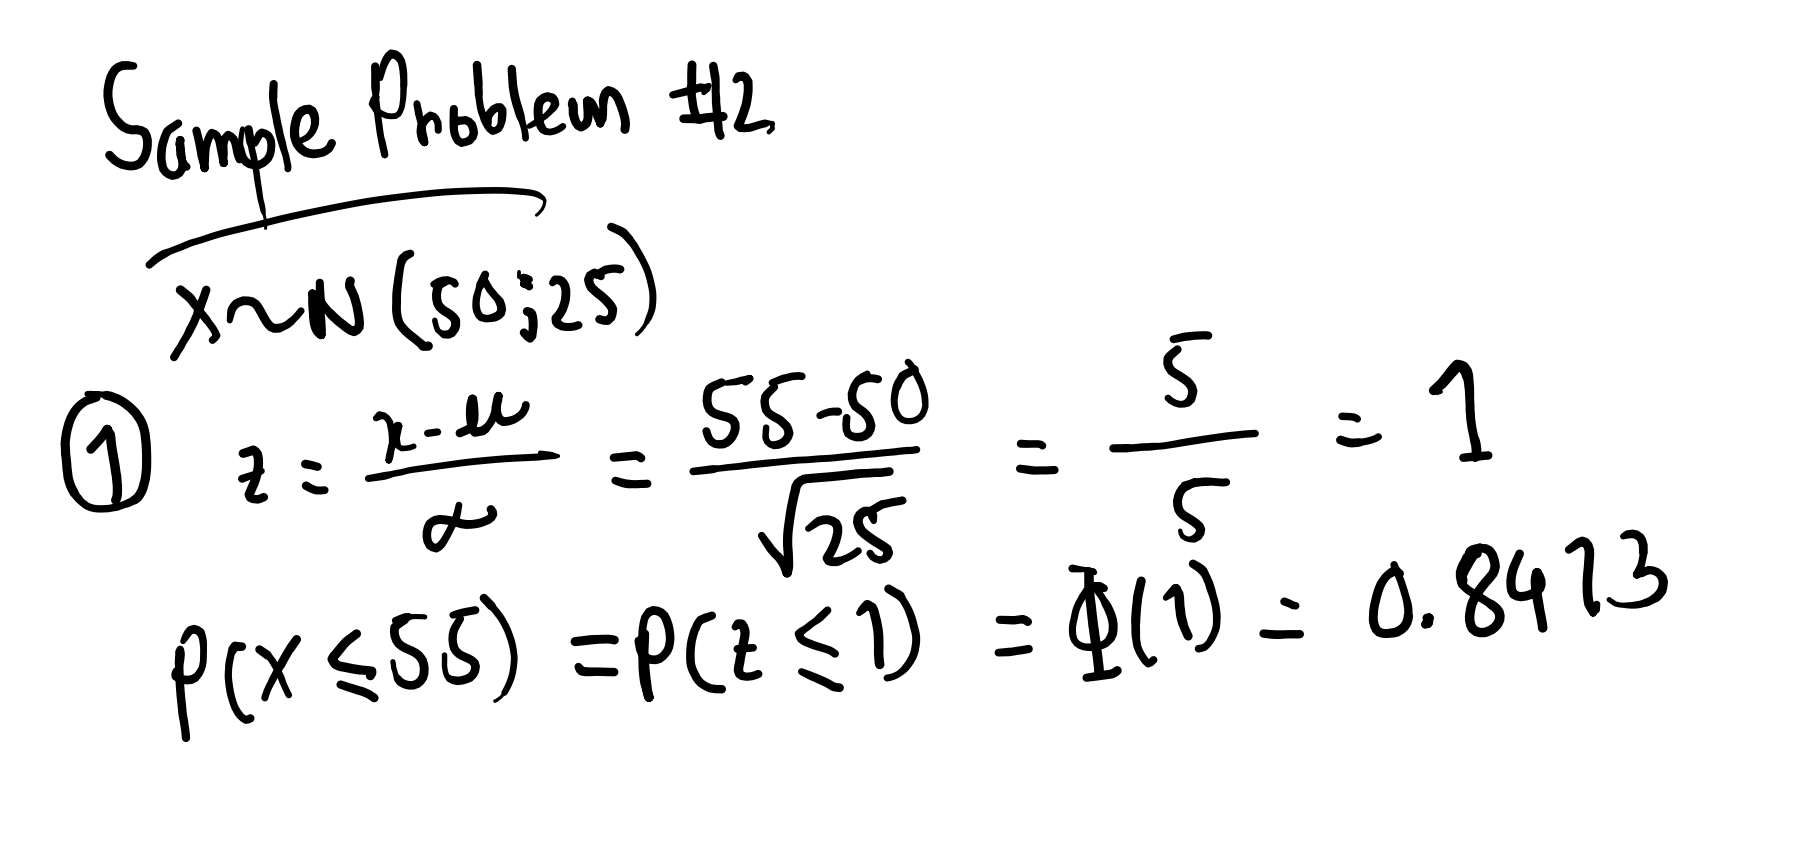 Sample Problem #2
X~N(50;25)
① z = x-μ/α = 55-50/√25 = 5/5 = 1
P(X ≤ 55) = P(z ≤ 1) = Φ(1) = 0.8413